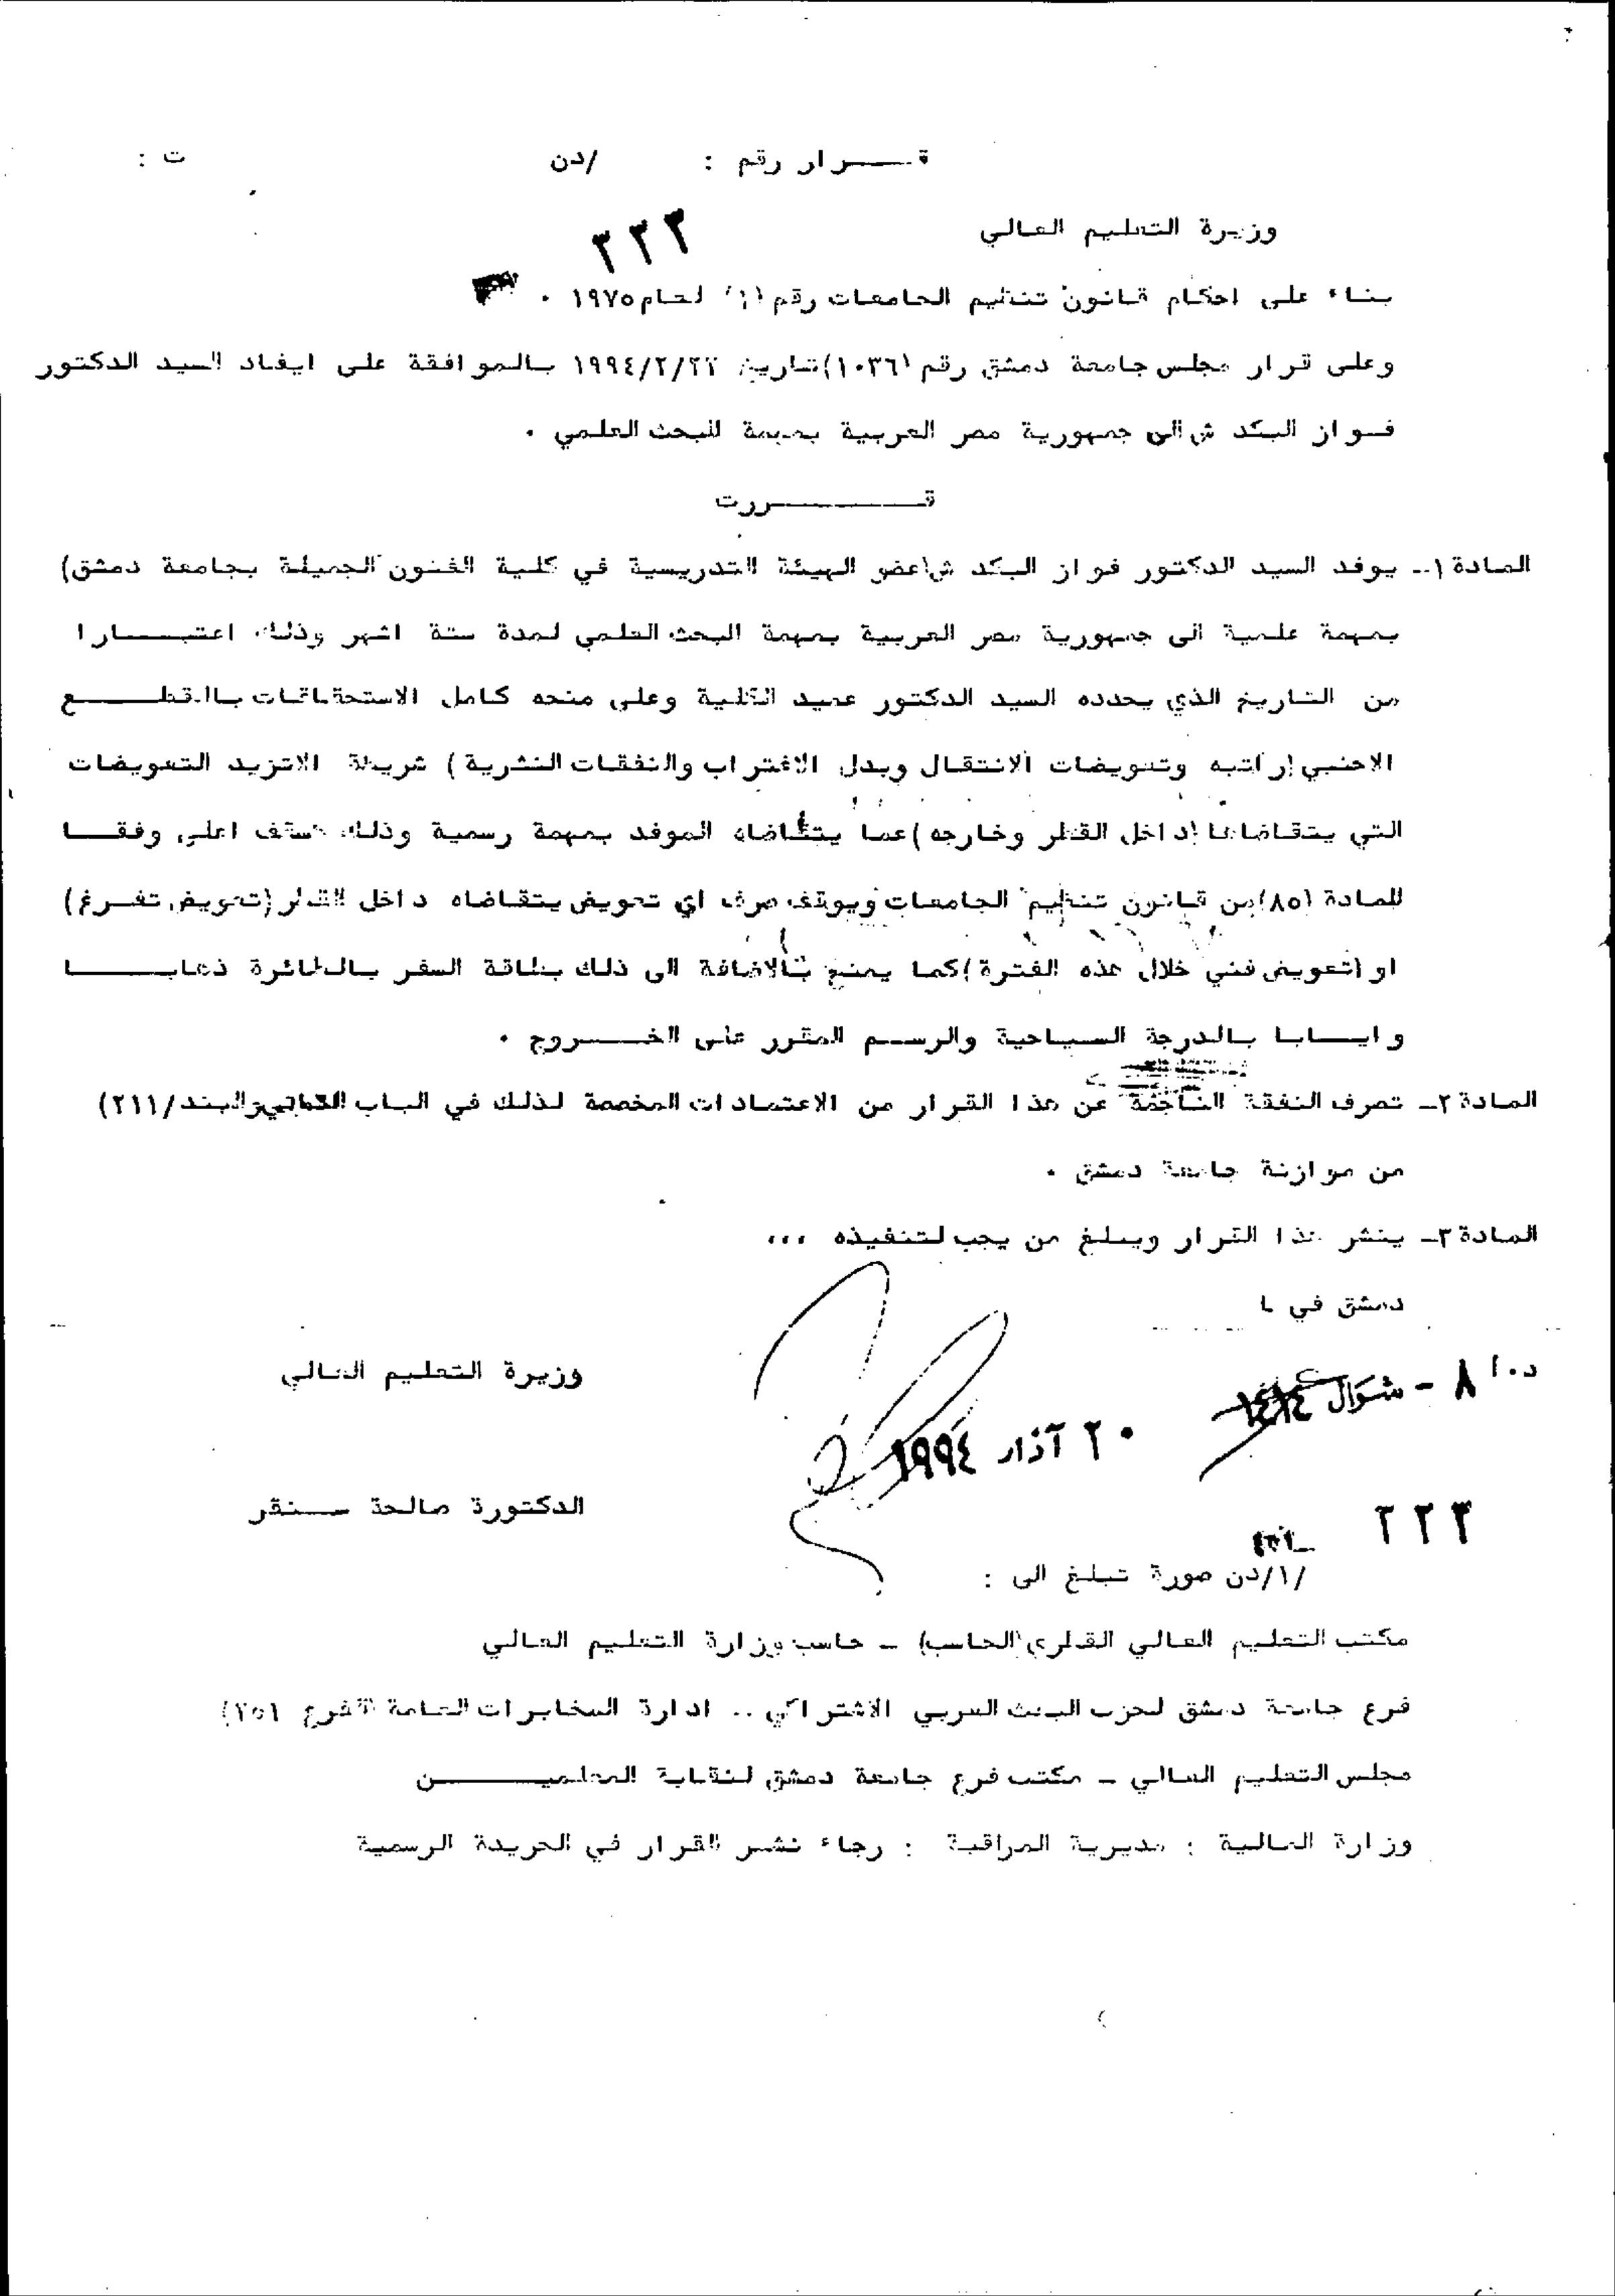 قـــرار رقم : /دن ت :
٣٣٣
وزيرة التعليم العالي
بناء على احكام قانون تنظيم الجامعات رقم (١) لعام ١٩٧٥ ٠
وعلى قرار مجلس جامعة دمشق رقم (١٠٣٦) تاريخ ١٩٩٤/٢/٢٢ بالموافقة على ايفاد السيد الدكتور
فواز البكدش الى جمهورية مصر العربية بمهمة للبحث العلمي ٠
قـــــــررت
المادة ١ـ يوفد السيد الدكتور فواز البكدش (عضو الهيئة التدريسية في كلية الفنون الجميلة بجامعة دمشق)
بمهمة علمية الى جمهورية مصر العربية بمهمة البحث العلمي لمدة ستة اشهر وذلك اعتبـــارا
من التاريخ الذي يحدده السيد الدكتور عميد الكلية وعلى منحه كامل الاستحقاقات بالقطـــع
الاجنبي (راتبه وتعويضات الانتقال وبدل الاغتراب والنفقات النثرية) شريطة الاتزيد التعويضات
التي يتقاضاها (داخل القطر وخارجه) عما يتقاضاه الموفد بمهمة رسمية وذلك كسقف اعلى وفقـــا
للمادة (٨٥) من قانون تنظيم الجامعات ويوقف صرف اي تعويض يتقاضاه داخل القطر (تعويض تفـرغ)
او (تعويض فني خلال هذه الفترة) كما يمنح بالاضافة الى ذلك بطاقة السفر بالطائرة ذهابـــــا
وايـــابا بالدرجة السياحية والرسـم المقرر على الخـــروج ٠
المادة ٢ـ تصرف النفقة الناجمة عن هذا القرار من الاعتمادات المخصصة لذلك في الباب الثاني والبند/٢١١)
من موازنة جامعة دمشق ٠
المادة ٣ـ ينشر هذا القرار ويبلغ من يجب لتنفيذه ٠٠٠
دمشق في
٨ - شوال ١٤١٤
٢٠ آذار ١٩٩٤
وزيرة التعليم العالي
الدكتورة صالحة ســنقر
٢٢٣
/١/دن صورة تبلغ الى :
مكتب التعليم العالي القطري (الحاسب) ـ حاسب وزارة التعليم العالي
فرع جامعة دمشق لحزب البعث العربي الاشتراكي ـ ادارة المخابرات العامة (الفرع ٢٥١)
مجلس التعليم العالي ـ مكتب فرع جامعة دمشق لنقابة المعلميـــــن
وزارة المالية : مديرية المراقبة : رجاء نشـر القرار في الجريدة الرسمية